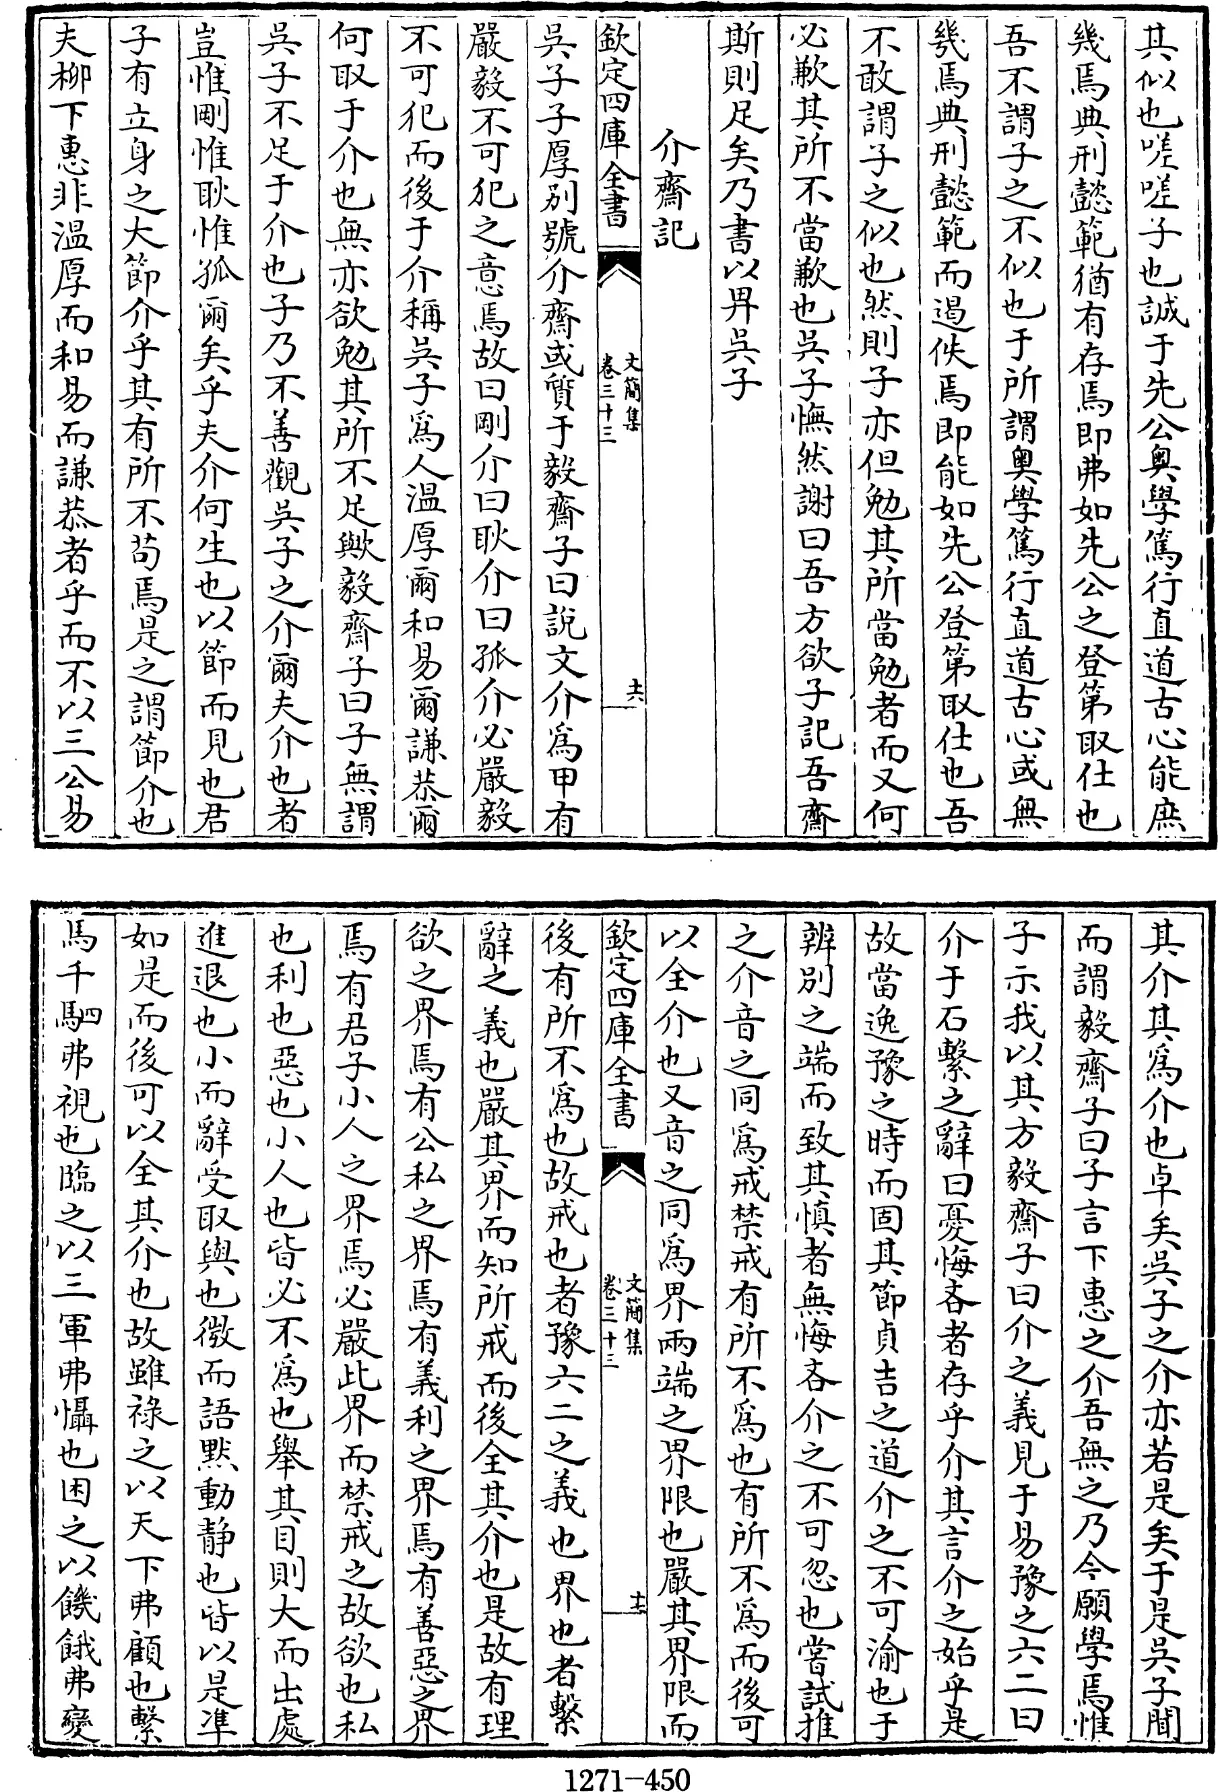 其似也嗟嗟子也誠于先公奥學篤行直道古心能庶
幾焉典刑懿範猶有存焉即弗如先公之登第取仕也
吾不謂子之不似也于所謂奥學篤行直道古心或無
幾焉典刑懿範而遏佚焉即能如先公登第取仕也吾
不敢謂子之似也然則子亦但勉其所當勉者而又何
必歉其所不當歉也吳子憮然謝曰吾方欲子記吾齋
斯則足矣乃書以畀吳子
介齋記
欽定四庫全書
文簡集
卷三十三
十六
吳子子厚别號介齋或質于毅齋子曰說文介為甲有
嚴毅不可犯之意焉故曰剛介曰耿介曰孤介必嚴毅
不可犯而後于介稱吳子為人溫厚爾和易爾謙恭爾
何取于介也無亦欲勉其所不足歟毅齋子曰子無謂
吳子不足于介也子乃不善觀吳子之介爾夫介也者
豈惟剛惟耿惟孤爾矣乎夫介何生也以節而見也君
子有立身之大節介乎其有所不苟焉是之謂節介也
夫柳下惠非溫厚而和易而謙恭者乎而不以三公易
其介其為介也卓矣吳子之介亦若是矣于是吳子聞
而謂毅齋子曰子言下惠之介吾無之乃今願學焉惟
子示我以其方毅齋子曰介之義見于易豫之六二曰
介于石繫之辭曰憂悔吝者存乎介其言介之始乎是
故當逸豫之時而固其節貞吉之道介之不可渝也于
辨别之端而致其慎者無悔吝介之不可忽也嘗試推
之介音之同為戒禁戒有所不為也有所不為而後可
以全介也又音之同為界兩端之界限也嚴其界限而
欽定四庫全書
文簡集
卷三十三
十七
後有所不為也故戒也者豫六二之義也界也者繫
辭之義也嚴其界而知所戒而後全其介也是故有理
欲之界焉有公私之界焉有義利之界焉有善惡之界
焉有君子小人之界焉必嚴此界而禁戒之故欲也私
也利也惡也小人也皆必不為也舉其目則大而出處
進退也小而辭受取與也微而語默動靜也皆以是準
如是而後可以全其介也故雖祿之以天下弗顧也繫
馬千駟弗視也臨之以三軍弗懾也困之以饑餓弗變
1271-450